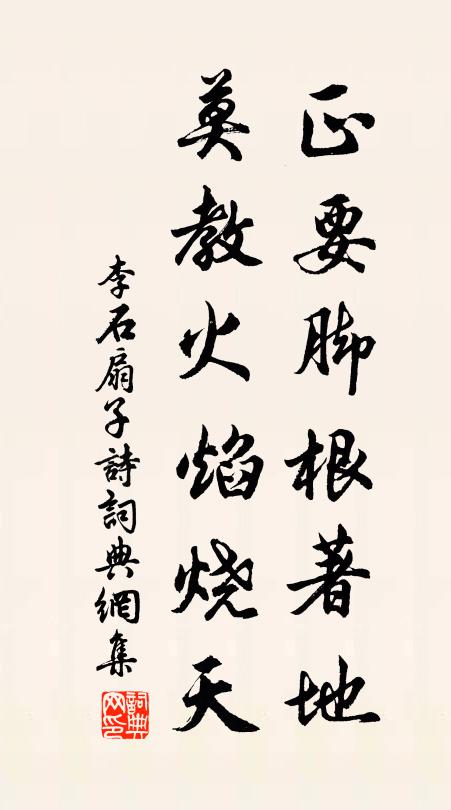 正要脚根著地
莫教火焰烧天
李石扇子詩詞典網集
詞典网印